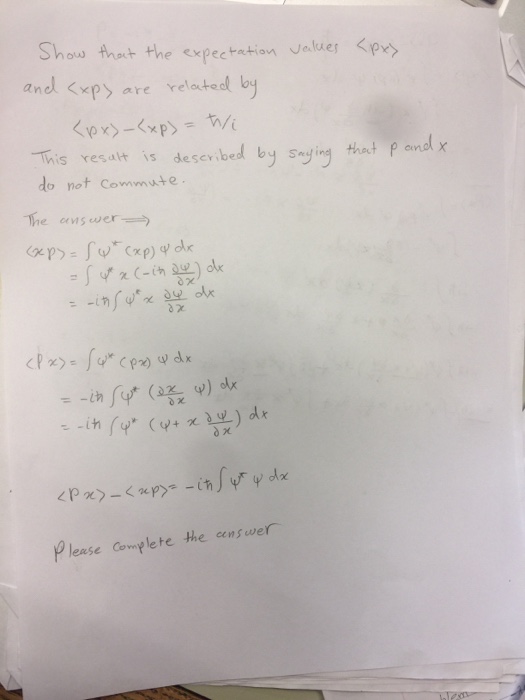 Show that the expectation values <px>
and <xp> are related by
<px>-<xp> = ħ/i
This result is described by saying that p and x
do not commute.
The answer ⟹
<xp> = ∫ψ* (xp) ψ dx
= ∫ψ* x (-iħ ∂ψ/∂x) dx
= -iħ∫ψ* x ∂ψ/∂x dx
<Px> = ∫ψ* (px) ψ dx
= -iħ ∫ψ* (∂x/∂x ψ) dx
= -iħ ∫ψ* (ψ + x ∂ψ/∂x) dx
<Px>-<xp> = -iħ∫ψ* ψ dx
Please complete the answer